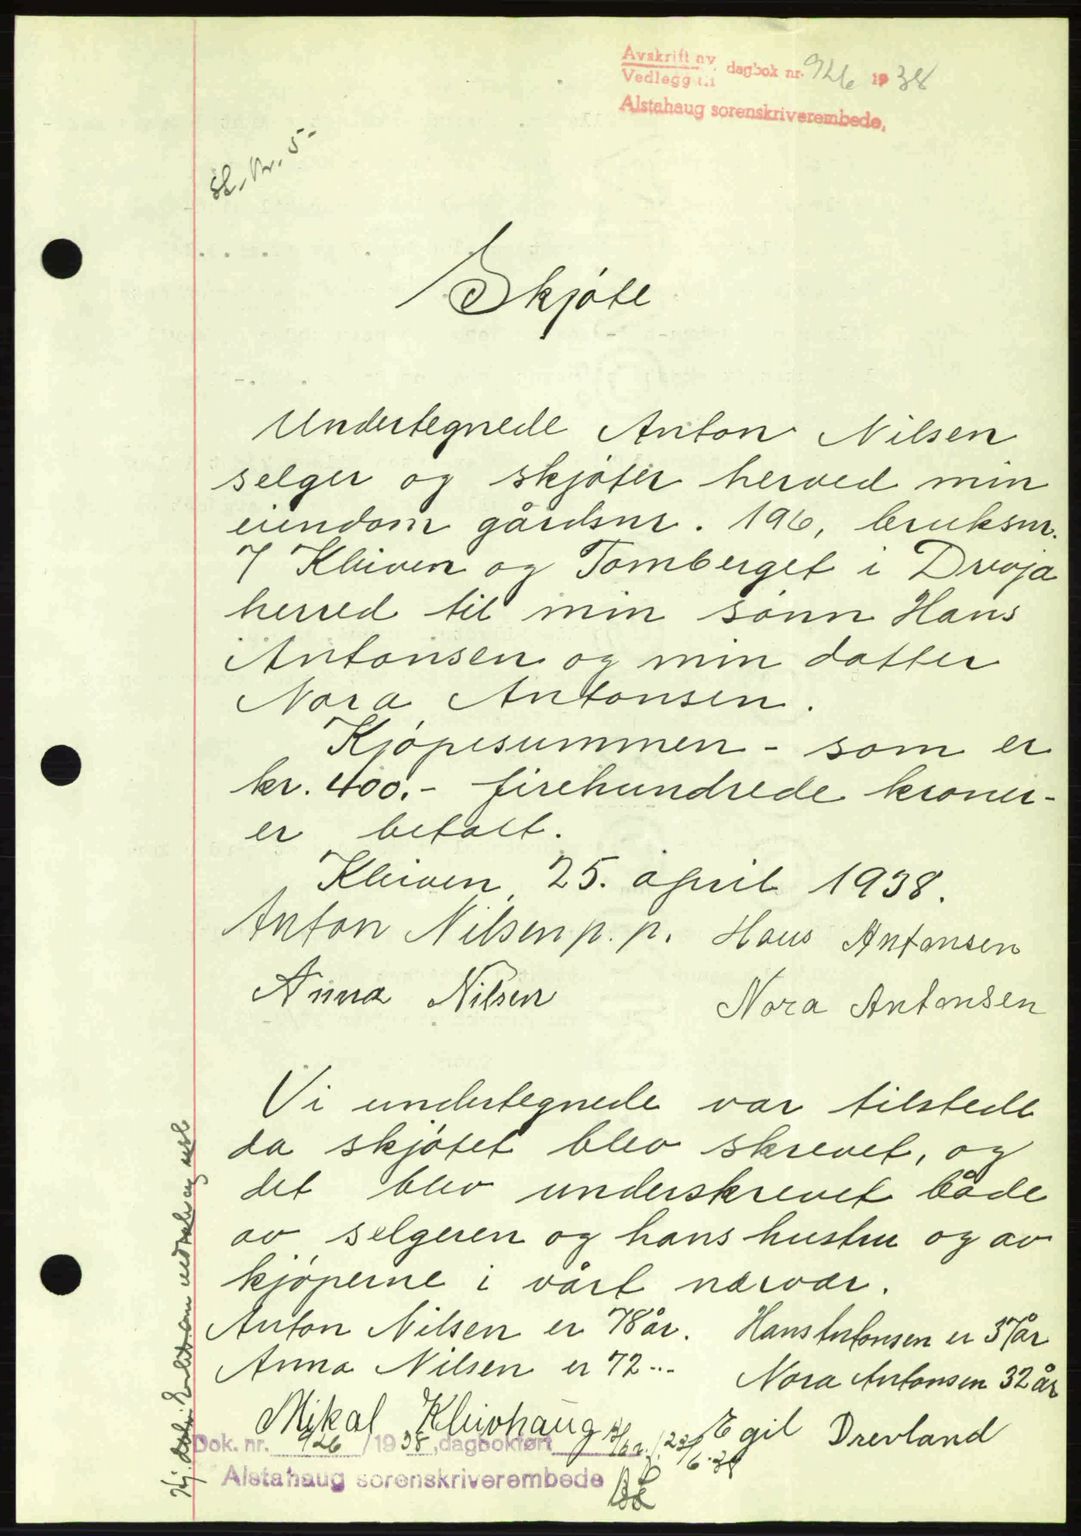 Avskrift av
Vedlegg til dagbok nr. 926 1938
Alstahaug sorenskriverembede,
St. Nr. 5-
Skjøte
Undertegnede Anton Nilsen
selger og skjøter herved min
eiendom gårdsnr. 196, bruksnr.
7 Kleiven og Tomberget i Drevja
herred til min sønn Hans
Antonsen og min datter
Nora Antonsen.
Kjøpesummen - som er
kr. 400.- firehundrede kroner-
er betalt.
Kleiven, 25. april 1938.
Anton Nilsen p. p. Hans Antonsen
Anna Nilsen Nora Antonsen
Vi undertegnede var tilstede
da skjøtet blev skrevet, og
det blev underskrevet både
av selgeren og hans hustru og av
kjøperne i vårt nærvær.
Anton Nilsen er 78 år. Hans Antonsen er 37 år
Anna Nilsen er 72 -"- Nora Antonsen 32 år
Mikal Kleivhaug Egil Drevland
Dok. nr. 926 /1938, dagbokført 22/6.38
Alstahaug sorenskriverembede